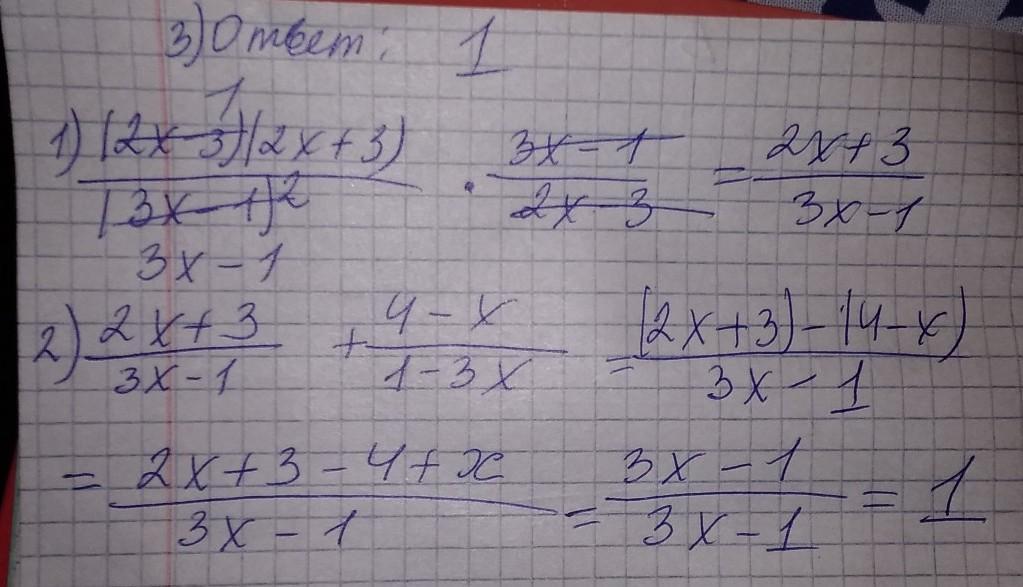 3) Ответ: 1
1) (2x-3)(2x+3)/(3x-1)² · (3x-1)/(2x-3) = (2x+3)/(3x-1)
1
3x-1
2) (2x+3)/(3x-1) + (4-x)/(1-3x) = ((2x+3)-(4-x))/(3x-1)
= (2x+3-4+x)/(3x-1) = (3x-1)/(3x-1) = 1